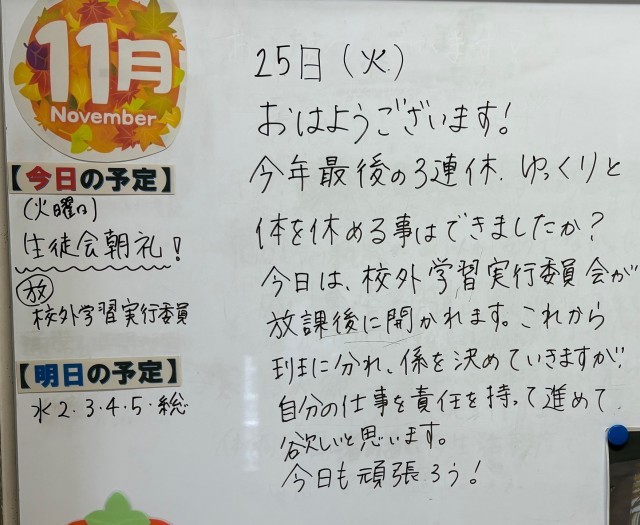 11月
November
【今日の予定】
(火曜日)
生徒会朝礼!
放
校外学習実行委員
【明日の予定】
水2・3・4・5・総
25日(火)
おはようございます!
今年最後の3連休、ゆっくりと
体を休める事はできましたか?
今日は、校外学習実行委員会が
放課後に開かれます。これから
班に分れ、係を決めていきますが、
自分の仕事を責任を持って進めて
欲しいと思います。
今日も頑張ろう!